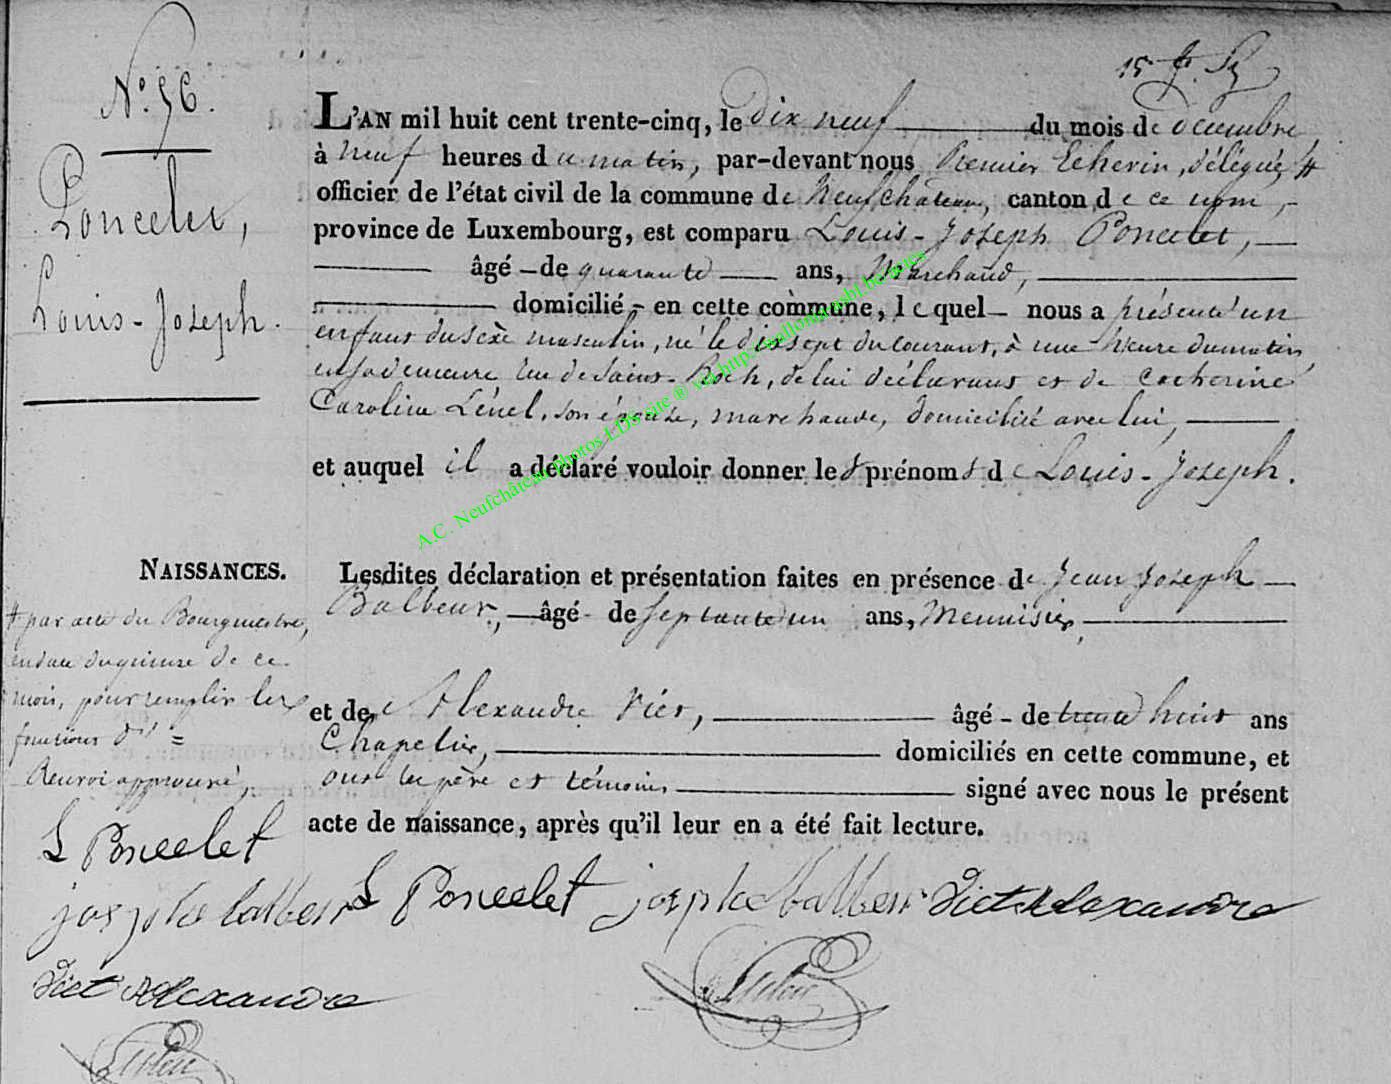 N.º 56.
Poncelet,
Louis-Joseph.
L'AN mil huit cent trente-cinq, le dix neuf du mois de décembre
à neuf heures du matin, par-devant nous Premier Echevin, délégué #
officier de l'état civil de la commune de Neufchâteau, canton de ce nom,
province de Luxembourg, est comparu Louis-Joseph Poncelet,
âgé de quarante ans, Marchand,
domicilié en cette commune, lequel nous a présenté un
enfant du sexe masculin, né le dix sept du courant, à une heure du matin
en sa demeure rue de Saint-Roch, de lui déclarant et de Catherine
Caroline Lénel, son épouse, marchande, domiciliée avec lui,
et auquel il a déclaré vouloir donner les prénoms de Louis-Joseph.
NAISSANCES.
Lesdites déclaration et présentation faites en présence de Jean Joseph
Balbeur, âgé de septante un ans, Menuisier,
et de Alexandre Diet, âgé de trente huit ans
Chapelier, domiciliés en cette commune, et
ont les père et témoins signé avec nous le présent
acte de naissance, après qu'il leur en a été fait lecture.
# par acte du Bourgmestre,
en date du quinze de ce
mois, pour remplir les
fonctions d'
Renvoi approuvé,
L Poncelet
josephe balbeur L Poncelet josephe balbeur Diet Alexandre
Diet Alexandre
A.C. Neufchâteau photos LDS site ® via http://wallonica